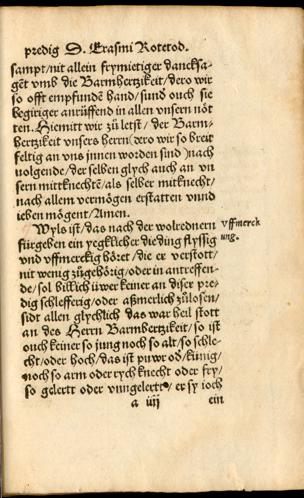 predig D. Erasmi Roterod.
sampt/nit allein frymietiger dancksa-
gēt vmb die Barmhertzikeit/dero wir
so offt empfundē hand/sund ouch sie
begiriger anrüffend in allen vnsern nöt
ten. Hiemitt wir zů letst/der Barm-
hertzikeit vnsers herrn (dero wir so breit
feltig an vns innen worden sind) nach
uolgende/der selben glych auch an vn
sern mittknechtē/als selber mitknecht/
nach allem vermögen erstatten vnnd
ieben mögent/Amen.
Wyls ist/das nach der wolrednern
fürgeben ein yegklicher die ding flyssig
vnd vffmerckig höret/die er verstott/
nit wenig zůgehörig/oder in antreffen-
de/sol billich üwer keiner an diser pre-
dig schlefferig/oder aßmerlich zůlosen/
sidt allen glychlich das war heil stott
an des Herrn Barmhertzikeit/so ist
ouch keiner so jung noch so alt/so schle-
cht/oder hoch/das ist puwr od/künig/
noch so arm oder rych knecht oder fry/
so gelertt oder vnngelertt/er sy ioch
vffmerck
ung.
a iiij
ein